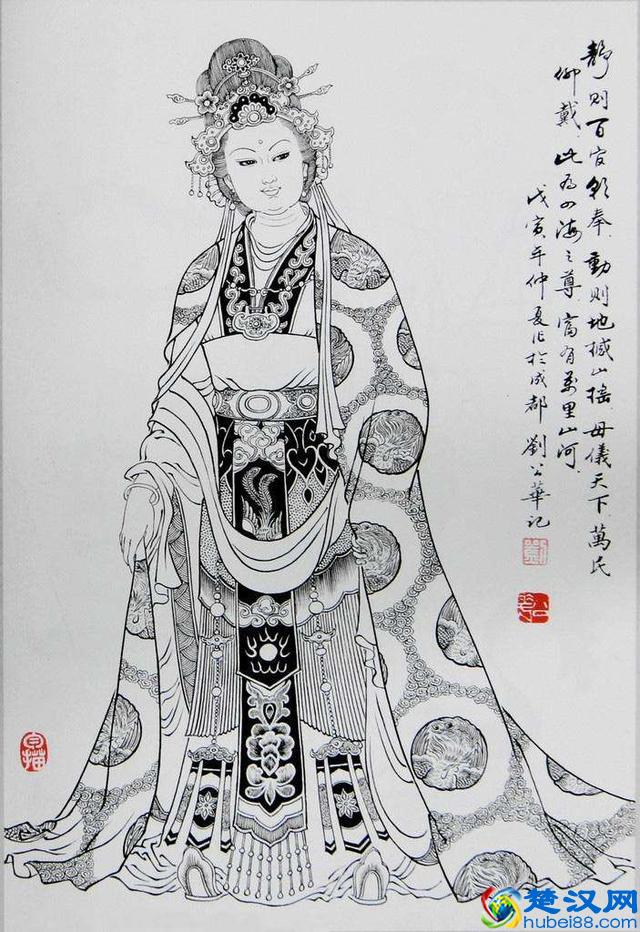 静则百官朝奉動则地撼山摇母儀天下萬民
仰戴此为四海之尊富有萬里山河
戊寅年仲夏作於成都劉公華记
白描
楚汉网
hubei88.com